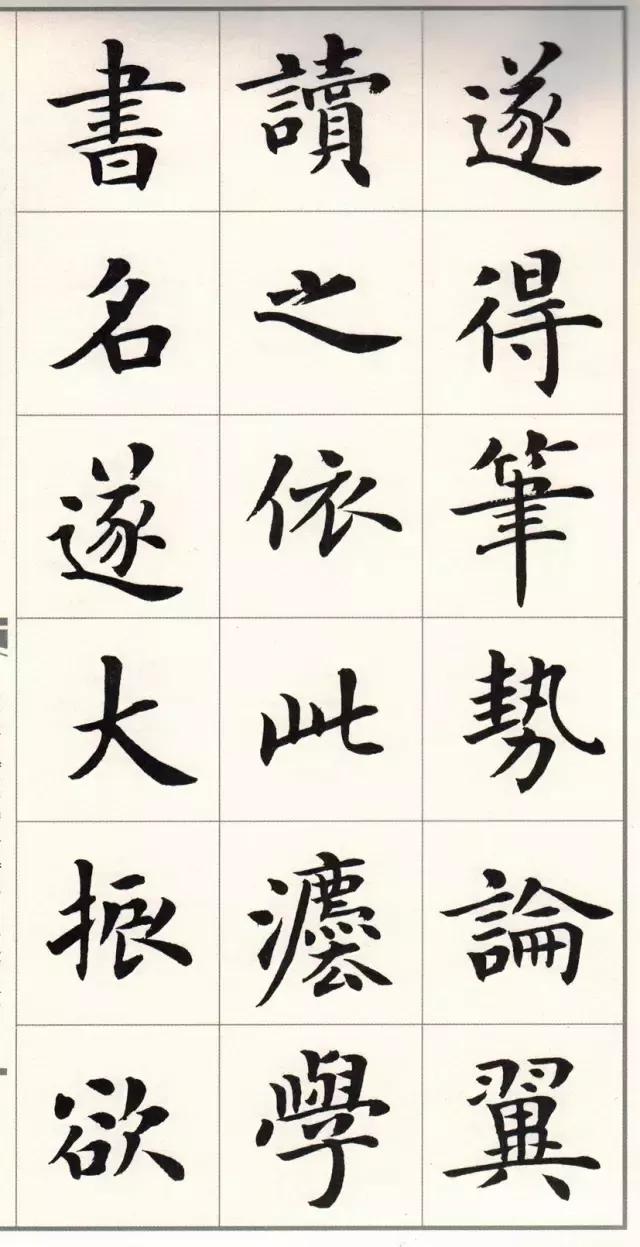 遂得筆勢論翼
讀之依此灋學
書名遂大振欲